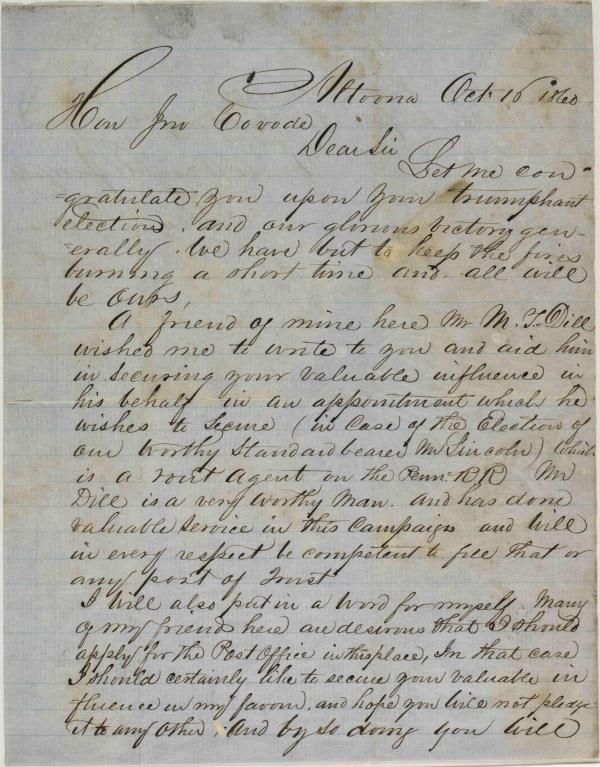 Altoona Oct 16 1860
Hon Jno Covode
Dear Sir
Let me con-
=gratulate you upon your triumphant
election, and our glorious victory gen-
=erally. We have but to keep the fires
burning a short time and all will
be ours,
A friend of mine here Mr M. T. Dill
wished me to write to you and aid him
in securing your valuable influence in
his behalf in an appointment which he
wishes to secure (in case of the Election of
our worthy Standard bearer Mr Lincoln) which
is a rout Agent on the Penn. R R Mr
Dill is a very worthy man. and has done
valuable service in this Campaign and will
in every respect be competent to fill that or
any post of trust
I will also put in a word for myself. Many
of my friends here are desirous that I should
apply for the Post Office in this place, In that case
I should certainly like to secure your valuable in
fluence in my favour, and hope you will not pledge
it to any other, And by so doing you will